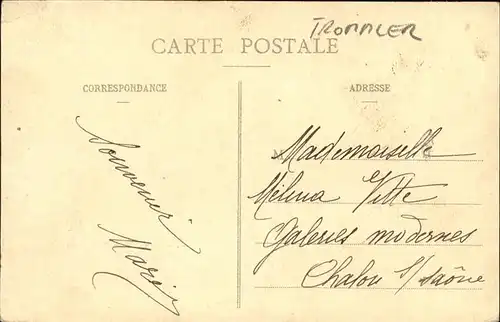 TROMMLER
CARTE POSTALE
CORRESPONDANCE
ADRESSE
Souvenir
Marie
Mademoiselle
Mélina Vitte
Galeries modernes
Chalon s/ saône